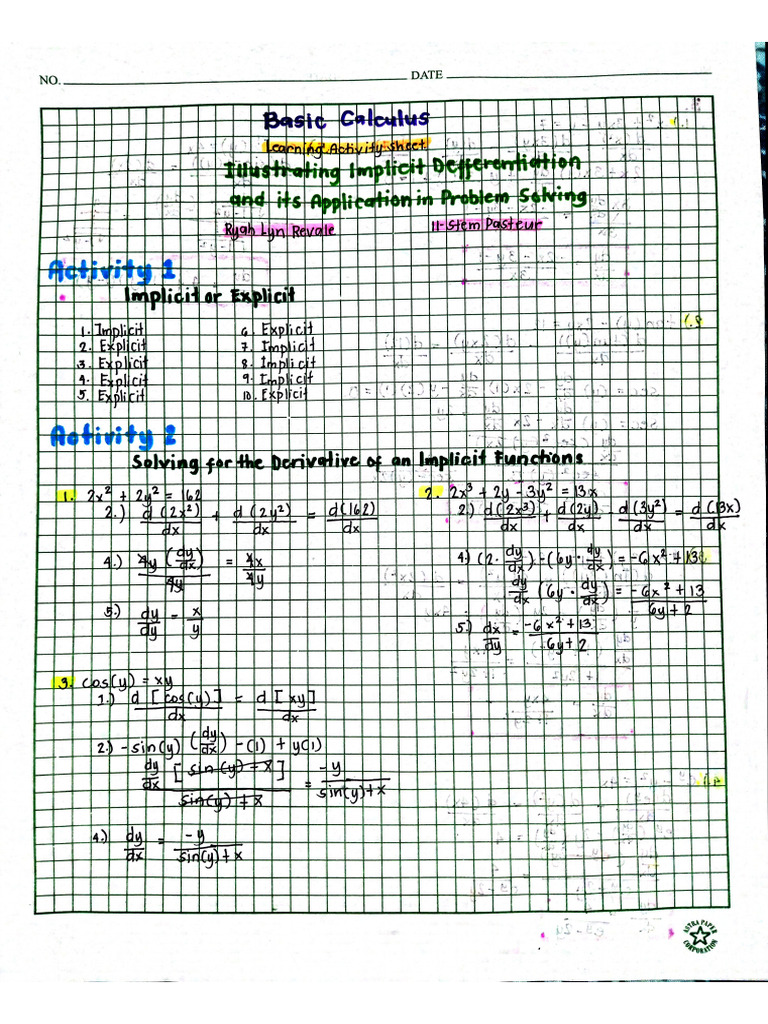 NO. DATE
Basic Calculus
Learning Activity Sheet
Illustrating Implicit Defferentiation
and its Application in Problem Solving
Ryah Lyn Revale 11-Stem Pasteur
Activity 1
Implicit or Explicit
1. Implicit
2. Explicit
3. Explicit
4. Explicit
5. Explicit
6. Explicit
7. Implicit
8. Implicit
9. Implicit
10. Explicit
Activity 2
Solving for the Derivative of an Implicit Functions
1. 2x² + 2y² = 162
2.) d(2x²)/dx + d(2y²)/dx = d(162)/dx
4.) 4y (dy/dx)/4y = 4x/4y
5.) dy/dy = x/y
2. 2x³ + 2y - 3y² = 13x
2.) d(2x³)/dx + d(2y)/dx d(3y²)/dx = d(13x)/dx
4.) (2 · dy/dx) - (6y · dy/dx) = -6x² + 13
dy/dx (6y · dy/dx) = -6x² + 13/6y + 2
5.) dx/dy = -6x² + 13/6y + 2
3. cos(y) = xy
1.) d [cos(y)]/dx = d [xy]/dx
2.) -sin(y) (dy/dx) - (1) + y(1)
dy/dx [sin(y) + x]/sin(y) + x = -y/sin(y) + x
4.) dy/dx = -y/sin(y) + x
ASTRA PAPER
CORPORATION